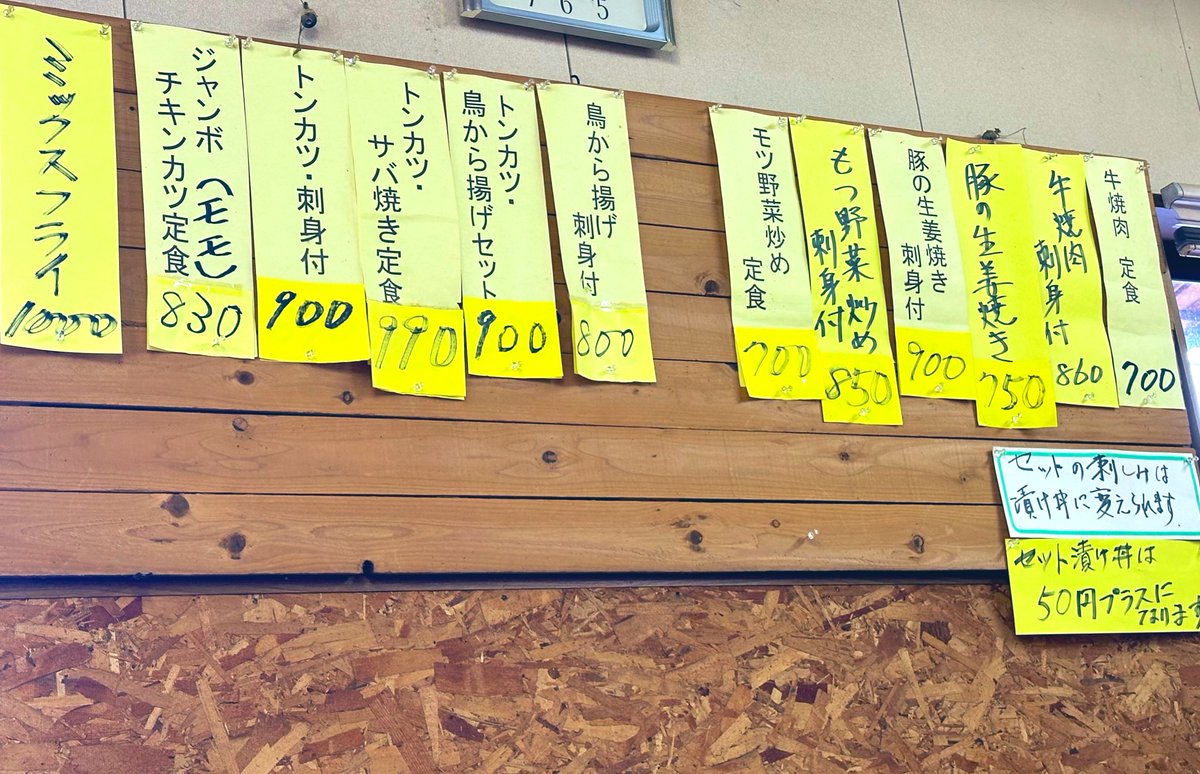 7 6 5
牛焼肉 定食
700
牛焼肉
刺身付
860
豚の生姜焼き
750
豚の生姜焼き
刺身付
900
もつ野菜炒め
刺身付
850
モツ野菜炒め 定食
700
鳥から揚げ
刺身付
800
トンカツ・
鳥から揚げセット
900
トンカツ・
サバ焼き定食
990
トンカツ・刺身付
900
ジャンボ(モモ)
チキンカツ定食
830
ミックスフライ
1000
セットの刺しみは
漬け丼に変えられます.
セット漬け丼は
50円プラスに
なります